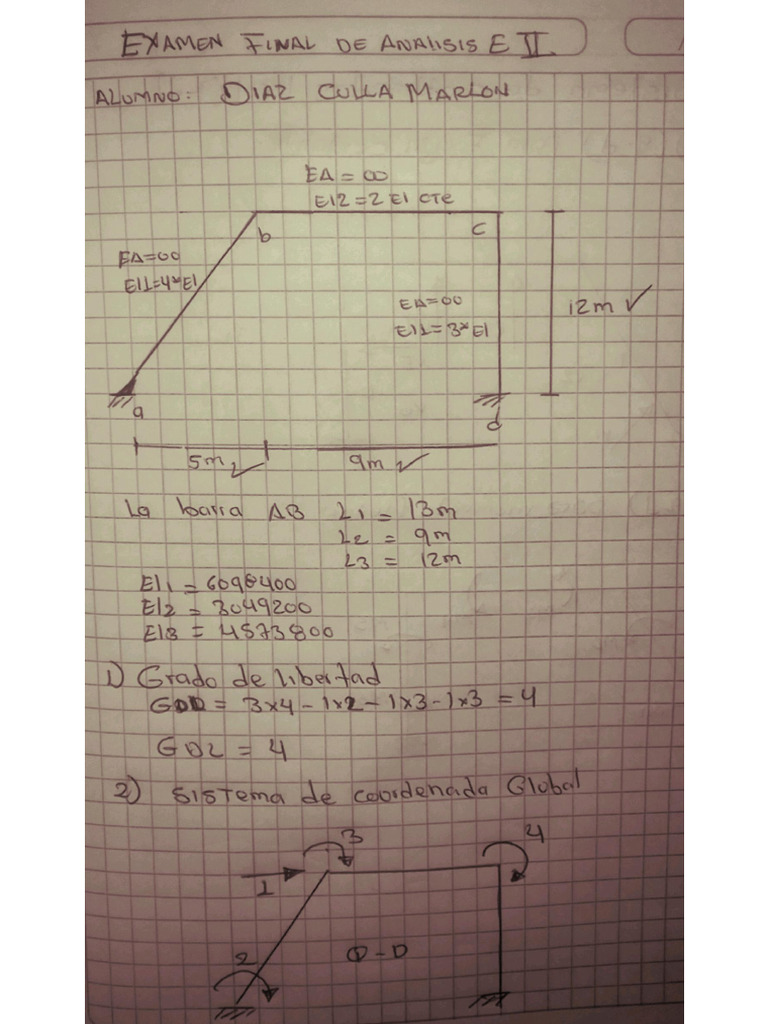 EXAMEN FINAL DE ANALISIS E II.
ALUMNO: DIAZ CULLA MARLON
EA = 00
EI2 = 2 EI CTE
b
c
EA=00
EI1=4*EI
EA=00
EI1=3*EI
12m ✓
a
d
5m ✓
9m ✓
La barra AB L1 = 13m
L2 = 9m
L3 = 12m
EI1 = 6098400
EI2 = 3049200
EI3 = 4573800
1) Grado de libertad
GDL = 3x4 - 1x2 - 1x3 - 1x3 = 4
GDL = 4
2) Sistema de coordenada Global
3
4
1
2
Q-D